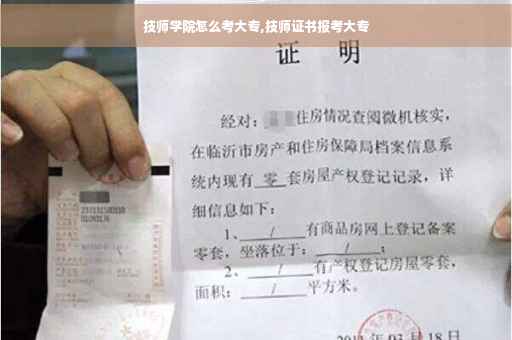 技师学院怎么考大专,技师证书报考大专
证 明
经对：住房情况查阅微机核实，
在临沂市房产和住房保障局档案信息系
统内现有 零 套房屋产权登记记录，详
细信息如下：
1、 / 有商品房网上登记备案
零套，坐落位于： / ；
2、 / 有产权登记房屋零套，
面积： / 平方米。
03 月 18 日